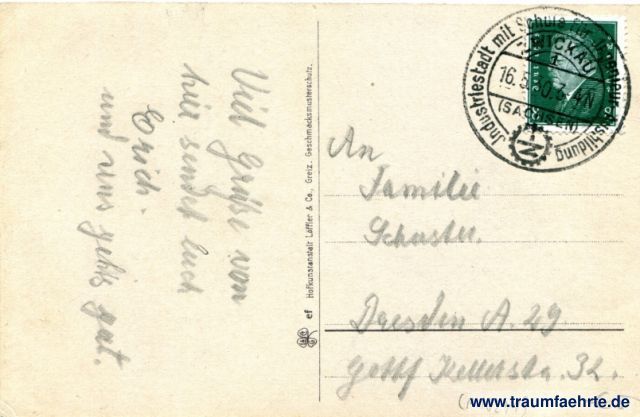 Viel Grüße von
hier sendet Euch
Erich.
und uns gehts gut.
ef Hofkunstanstalt Löffler & Co., Greiz. Geschmacksmusterschutz.
Industriestadt mit Schule für Ingenieur Ausbildung
ZWICKAU
1
16.5.30.3-4N
(SACHSEN)
An
Familie
Schuster.
Dresden A. 29
Gottf Kellerstr. 32.
www.traumfaehrte.de